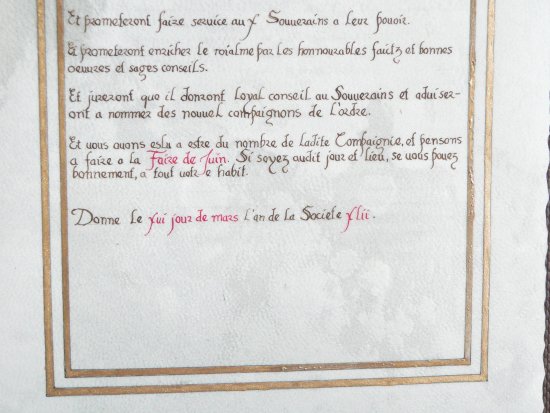 Et prometeront faire service aux Souverains a leur pouoir.
Et prometeront enricher le roialme par les honnourables faitz et bonnes
oeuvres et sages conseils.
Et jureront que il donront loyal conseil au Souverains et aduiser-
ont a nommez des nouuel compaignons de l'ordre.
Et uous auons eslu a estre du nombre de ladite Compaignie, et pensons
a faire a la Faire de Juin. Si soyez audit jour et lieu, se uous pouez
bonnement, a tout uotre habit.
Donne le xui jour de mars l'an de la Societe xlii.